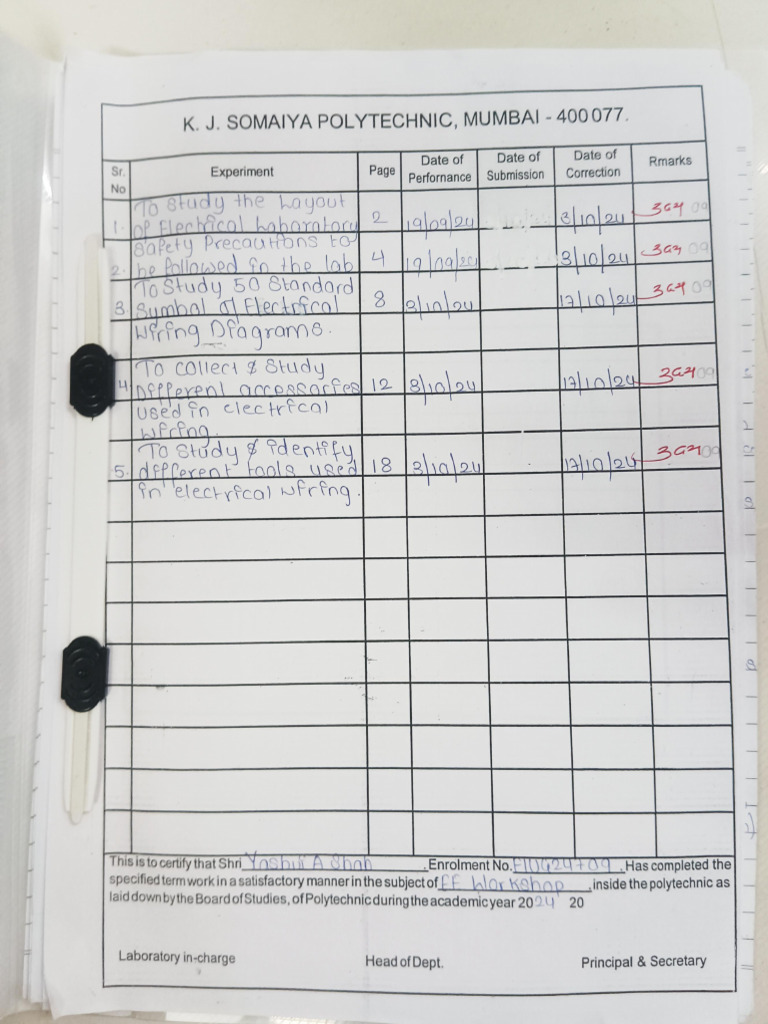 K. J. SOMAIYA POLYTECHNIC, MUMBAI - 400 077.
Sr. No Experiment Page Date of Perfornance Date of Submission Date of Correction Rmarks
To study the Layout
1. of Electrical Laboratory 2 19/09/24 3/10/24
Safety Precautions to
2. be followed in the lab 4 19/09/24 3/10/24
To Study 50 Standard
3. Symbol of Electrical 8 3/10/24 17/10/24
Wiring Diagrams.
To collect & Study
4. Different accessories 12 3/10/24 17/10/24
used in electrical
wiring.
To Study & identify
5. different tools used 18 3/10/24 17/10/24
in electrical wiring.
This is to certify that Shri A Shah Enrolment No. Has completed the
specified term work in a satisfactory manner in the subject of EE Workshop inside the polytechnic as
laid down by the Board of Studies, of Polytechnic during the academic year 2024 20
Laboratory in-charge Head of Dept. Principal & Secretary